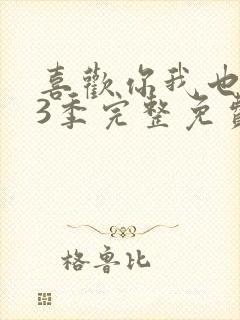 喜歡你我也
3季完整免費
格魯比